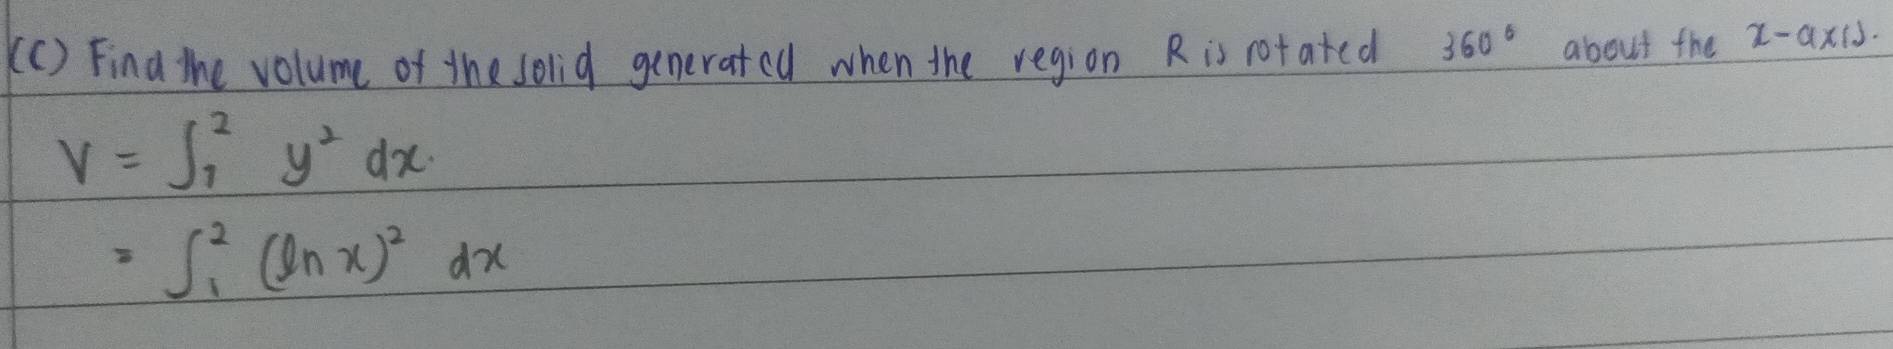 (C) Find the volume of the solid generated when the region R is rotated 360° about the x-axis.
V = ∫₁² y² dx.
= ∫₁² (ln x)² dx